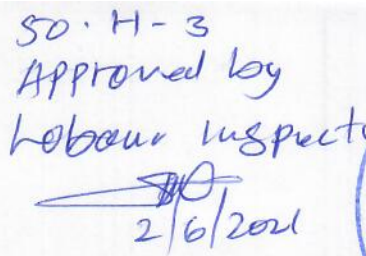 50. H - 3
Approved by
Labour Inspecto
2/6/2021